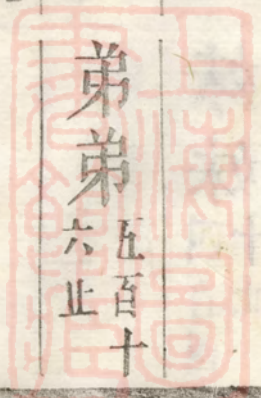 弟弟
五百十
六止